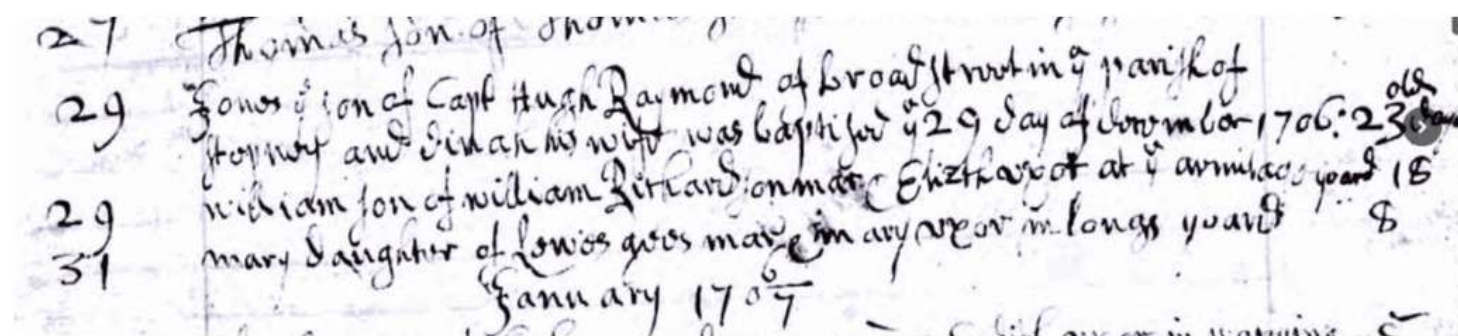 27 Thomas son of Thomas
29 Jones ye son of Capt Hugh Raymond of broad street in ye parish of
stepney and dinah his wife was baptised ye 29 day of december 1706: 23 days old
29 william son of william Richardson mar & Elizth uxor at ye yeard 18
31 mary daughter of Lewes mar & mary uxor in longs yeard 8
January 1706/7